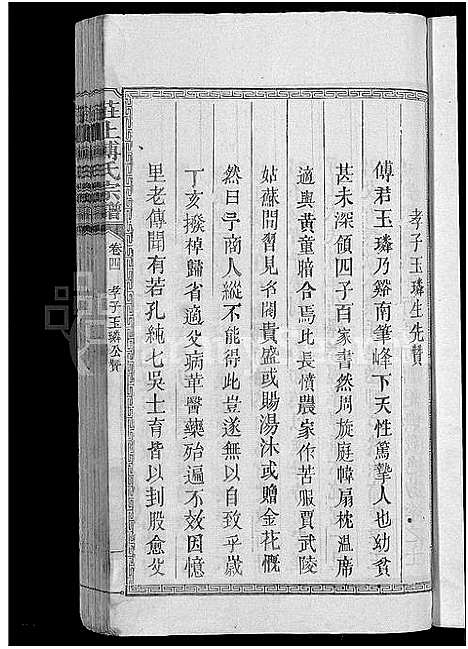 孝子玉璘生先贊
傅君玉璘乃谿南筆峰下天性篤摯人也幼貧
甚未深領四子百家書然周旋庭幃扇枕温席
適與黃童暗合焉比長憤農家作苦服賈武陵
姑蘇間習見名閥貴盛或賜湯沐或贈金花慨
然曰予商人縱不能得此豈遂無以自致乎歲
丁亥撥棹歸省適父病革醫藥殆遍不效因憶
里老傳聞有若孔純七吳士育皆以刲股愈父
莊上傅氏宗譜
卷四
孝子玉璘公贊